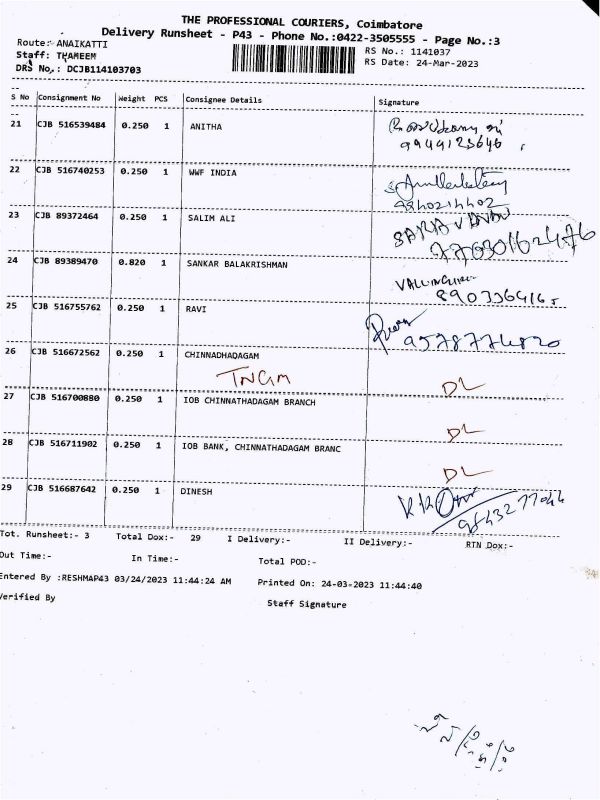 THE PROFESSIONAL COURIERS, Coimbatore
Delivery Runsheet - P43 - Phone No.:0422-3505555 - Page No.:3
Route:- ANAIKATTI
Staff: THAMEEM
DRS No.: DCJB114103703
RS No.: 1141037
RS Date: 24-Mar-2023
S No Consignment No Weight PCS Consignee Details Signature
21 CJB 516539484 0.250 1 ANITHA
9949123646
22 CJB 516740253 0.250 1 WWF INDIA
9840214402
23 CJB 89372464 0.250 1 SALIM ALI
SARAVANAN
24 CJB 89389470 0.820 1 SANKAR BALAKRISHMAN
25 CJB 516755762 0.250 1 RAVI
9578774820
26 CJB 516672562 0.250 1 CHINNADHADAGAM
TNGM DL
27 CJB 516700880 0.250 1 IOB CHINNATHADAGAM BRANCH
DL
28 CJB 516711902 0.250 1 IOB BANK, CHINNATHADAGAM BRANC
DL
29 CJB 516687642 0.250 1 DINESH
Tot. Runsheet:- 3 Total Dox:- 29 I Delivery:- II Delivery:- RTN Dox:-
Out Time:- In Time:- Total POD:-
Entered By :RESHMAP43 03/24/2023 11:44:24 AM Printed On: 24-03-2023 11:44:40
Verified By Staff Signature